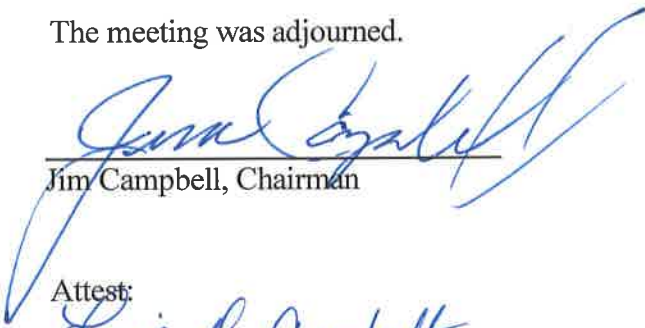 The meeting was adjourned.
Jim Campbell
Jim Campbell, Chairman
Attest: